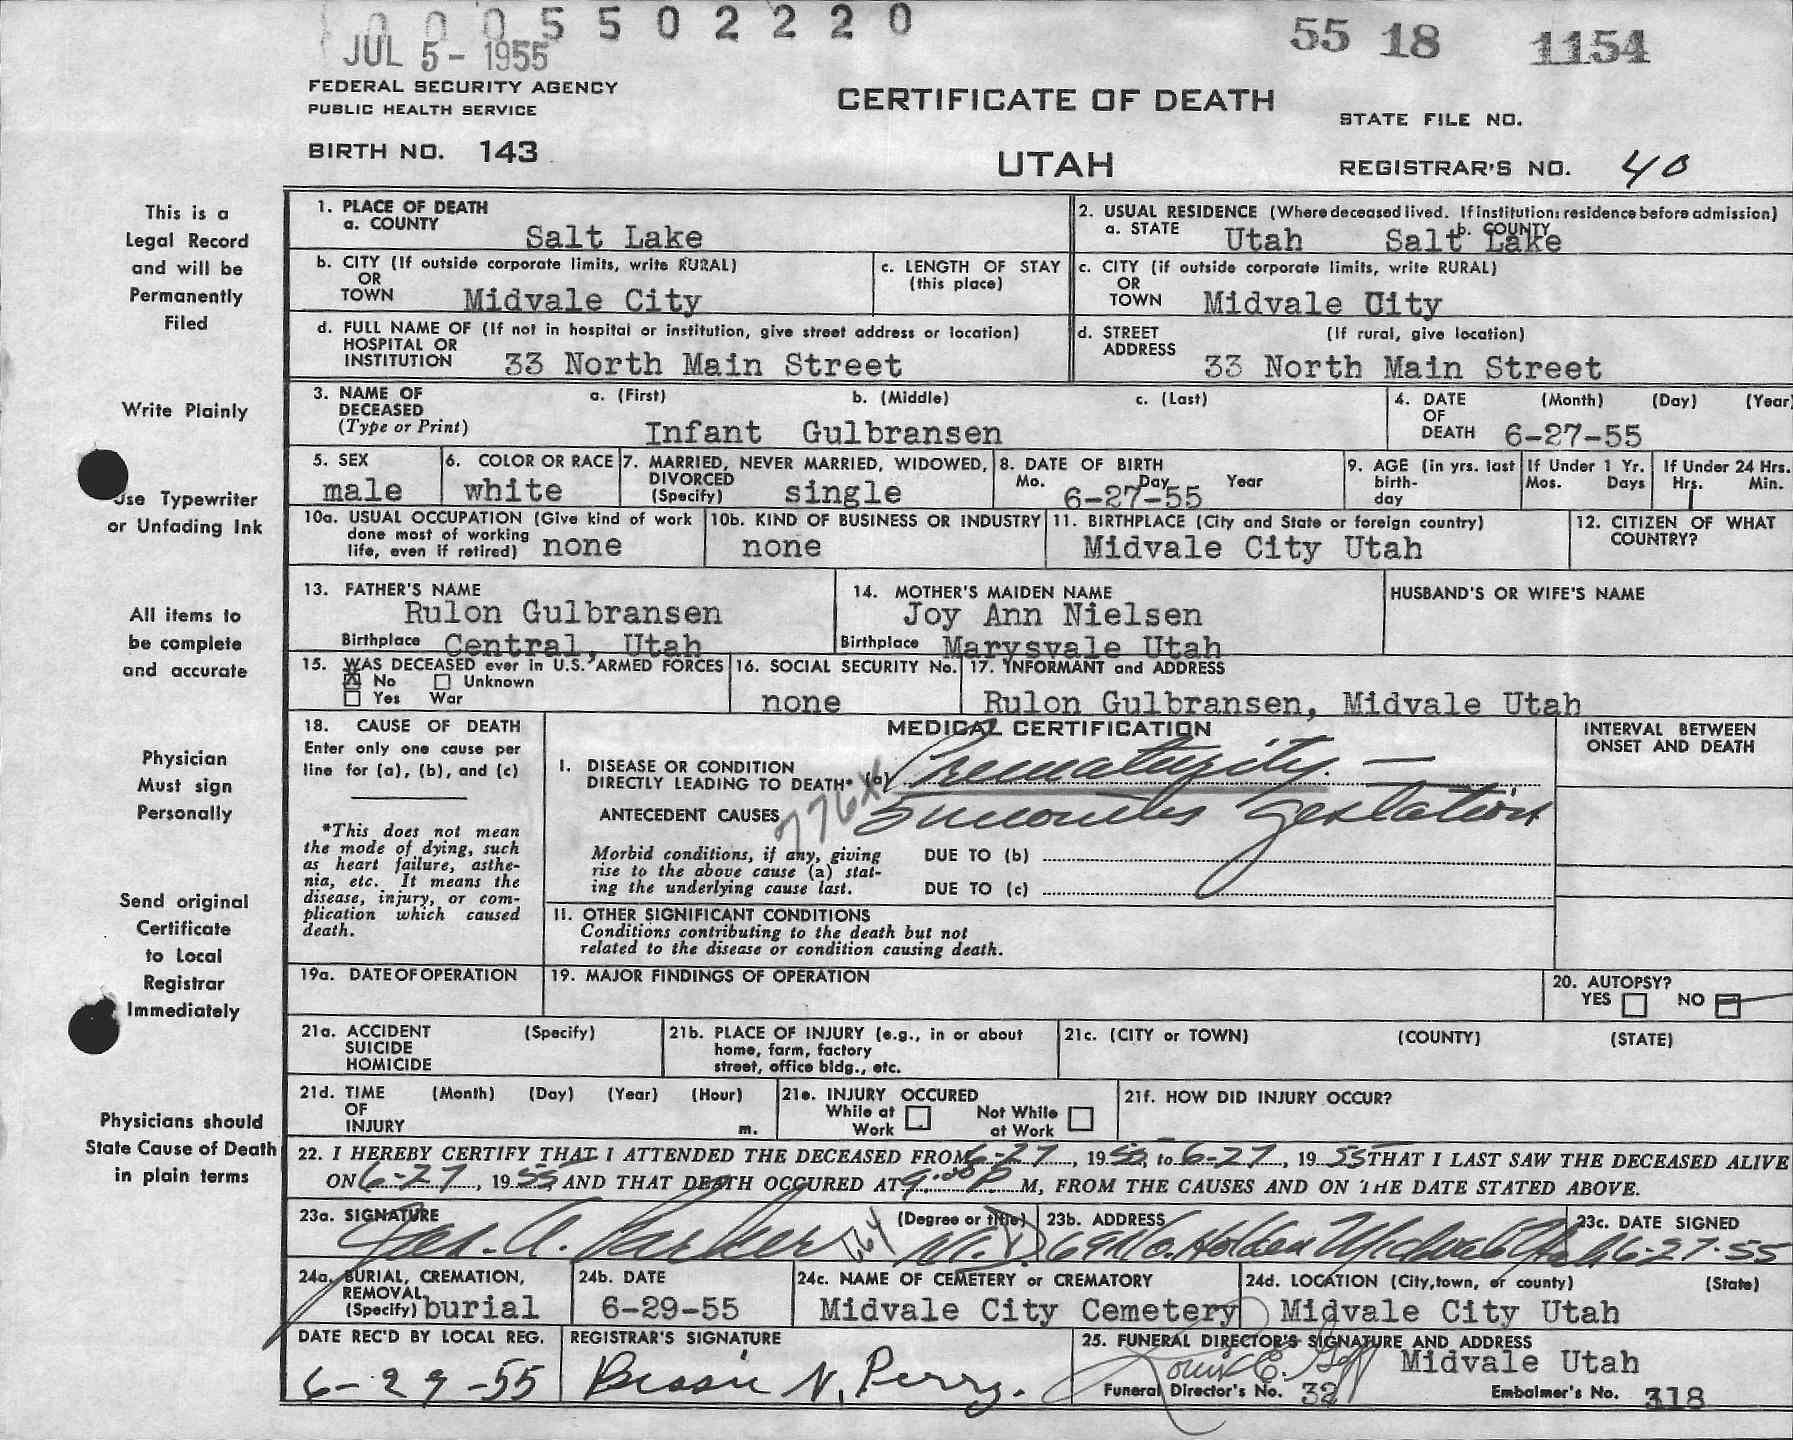 0 0 0 5 5 0 2 2 2 0
JUL 5 - 1955
55 18 1154
FEDERAL SECURITY AGENCY
PUBLIC HEALTH SERVICE
CERTIFICATE OF DEATH
STATE FILE NO.
BIRTH NO. 143
UTAH
REGISTRAR'S NO. 40
This is a
Legal Record
and will be
Permanently
Filed
Write Plainly
Use Typewriter
or Unfading Ink
All items to
be complete
and accurate
Physician
Must sign
Personally
Send original
Certificate
to Local
Registrar
Immediately
Physicians should
State Cause of Death
in plain terms
1. PLACE OF DEATH
a. COUNTY Salt Lake
2. USUAL RESIDENCE (Where deceased lived. If institution: residence before admission)
a. STATE Utah b. COUNTY Salt Lake
b. CITY (If outside corporate limits, write RURAL)
OR
TOWN Midvale City
c. LENGTH OF STAY
(this place)
c. CITY (if outside corporate limits, write RURAL)
OR
TOWN Midvale City
d. FULL NAME OF (If not in hospital or institution, give street address or location)
HOSPITAL OR
INSTITUTION 33 North Main Street
d. STREET (If rural, give location)
ADDRESS 33 North Main Street
3. NAME OF a. (First) b. (Middle) c. (Last)
DECEASED
(Type or Print) Infant Gulbransen
4. DATE (Month) (Day) (Year)
OF
DEATH 6-27-55
5. SEX
male
6. COLOR OR RACE
white
7. MARRIED, NEVER MARRIED, WIDOWED,
DIVORCED
(Specify) single
8. DATE OF BIRTH
Mo. Day Year
6-27-55
9. AGE (in yrs. last
birth-
day
If Under 1 Yr.
Mos. Days
If Under 24 Hrs.
Hrs. Min.
10a. USUAL OCCUPATION (Give kind of work
done most of working
life, even if retired) none
10b. KIND OF BUSINESS OR INDUSTRY
none
11. BIRTHPLACE (City and State or foreign country)
Midvale City Utah
12. CITIZEN OF WHAT
COUNTRY?
13. FATHER'S NAME
Rulon Gulbransen
Birthplace Central, Utah
14. MOTHER'S MAIDEN NAME
Joy Ann Nielsen
Birthplace Marysvale Utah
HUSBAND'S OR WIFE'S NAME
15. WAS DECEASED ever in U.S. ARMED FORCES
X No Unknown
Yes War
16. SOCIAL SECURITY No.
none
17. INFORMANT and ADDRESS
Rulon Gulbransen, Midvale Utah
18. CAUSE OF DEATH
Enter only one cause per
line for (a), (b), and (c)
*This does not mean
the mode of dying, such
as heart failure, asthe-
nia, etc. It means the
disease, injury, or com-
plication which caused
death.
MEDICAL CERTIFICATION
INTERVAL BETWEEN
ONSET AND DEATH
I. DISEASE OR CONDITION
DIRECTLY LEADING TO DEATH* (a) Prematurity. —
ANTECEDENT CAUSES 776X 5 months gestation
Morbid conditions, if any, giving
rise to the above cause (a) stat-
ing the underlying cause last.
DUE TO (b)
DUE TO (c)
II. OTHER SIGNIFICANT CONDITIONS
Conditions contributing to the death but not
related to the disease or condition causing death.
19a. DATE OF OPERATION
19. MAJOR FINDINGS OF OPERATION
20. AUTOPSY?
YES NO
21a. ACCIDENT (Specify)
SUICIDE
HOMICIDE
21b. PLACE OF INJURY (e.g., in or about
home, farm, factory
street, office bldg., etc.
21c. (CITY or TOWN) (COUNTY) (STATE)
21d. TIME (Month) (Day) (Year) (Hour)
OF
INJURY m.
21e. INJURY OCCURED
While at Not While
Work at Work
21f. HOW DID INJURY OCCUR?
22. I HEREBY CERTIFY THAT I ATTENDED THE DECEASED FROM 6-27, 1955, to 6-27, 1955 THAT I LAST SAW THE DECEASED ALIVE
ON 6-27, 1955, AND THAT DEATH OCCURED AT 9:00 P M, FROM THE CAUSES AND ON THE DATE STATED ABOVE.
23a. SIGNATURE (Degree or title)
Jas. A. Parker M.D.
23b. ADDRESS
69 No. Holden Midvale Utah
23c. DATE SIGNED
6-27-55
24a. BURIAL, CREMATION,
REMOVAL
(Specify) burial
24b. DATE
6-29-55
24c. NAME OF CEMETERY or CREMATORY
Midvale City Cemetery
24d. LOCATION (City, town, or county) (State)
Midvale City Utah
DATE REC'D BY LOCAL REG.
6-29-55
REGISTRAR'S SIGNATURE
Bessie N. Perry.
25. FUNERAL DIRECTOR'S SIGNATURE AND ADDRESS
Louis E. Goff Midvale Utah
Funeral Director's No. 32 Embalmer's No. 318